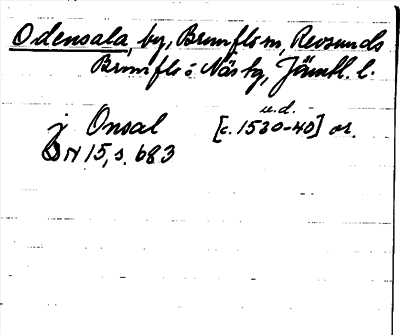 Odensala, by, Brunflo sn, Revsunds
Brunflo o Näs tg, Jämtl. l.
u.d.
j Onsal [c. 1530-40] or.
DN 15, s. 683